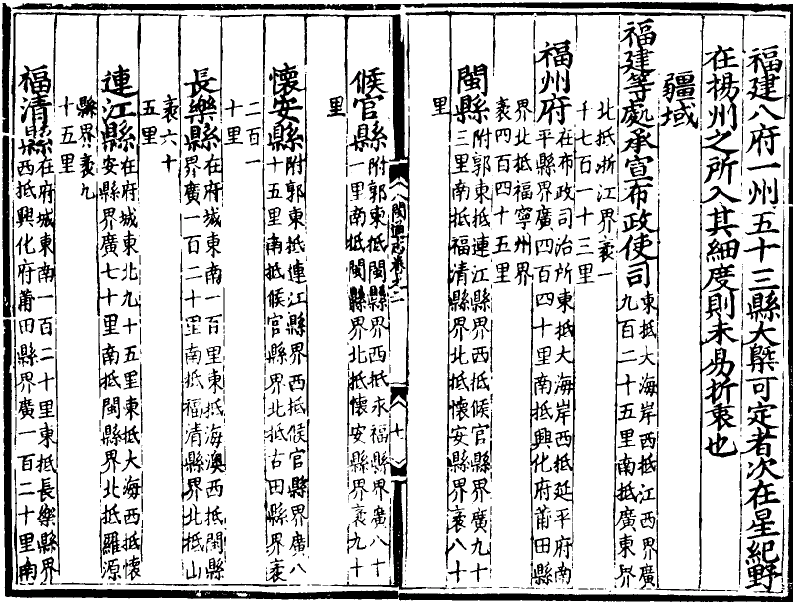 福建八府一州五十三縣大槩可定者次在星紀野
在揚州之所入其細度則未易折衷也
疆域
福建等處承宣布政使司
東抵大海岸西抵江西界廣
九百二十五里南抵廣東界
北抵浙江界袤一
千七百一十三里
福州府
在布政司治所東抵大海岸西抵延平府南
平縣界廣四百四十里南抵興化府莆田縣
界北抵福寧州界
袤四百四十五里
閩縣
附郭東抵連江縣界西抵候官縣界廣九十
三里南抵福清縣界北抵懷安縣界袤八十
里
八閩通志卷之二
十
候官縣
附郭東抵閩縣界西抵永福縣界廣八十
一里南抵閩縣界北抵懷安縣界袤九十
里
懷安縣
附郭東抵連江縣界西抵候官縣界廣八
十五里南抵候官縣界北抵古田縣界袤
二百一
十里
長樂縣
在府城東南一百里東抵海澳西抵閩縣
界廣一百二十里南抵福清縣界北抵山
袤六十
五里
連江縣
在府城東北九十五里東抵大海西抵懷
安縣界廣七十里南抵閩縣界北抵羅源
縣界袤九
十五里
福清縣
在府城東南一百二十里東抵長樂縣界
西抵興化府莆田縣界廣一百二十里南